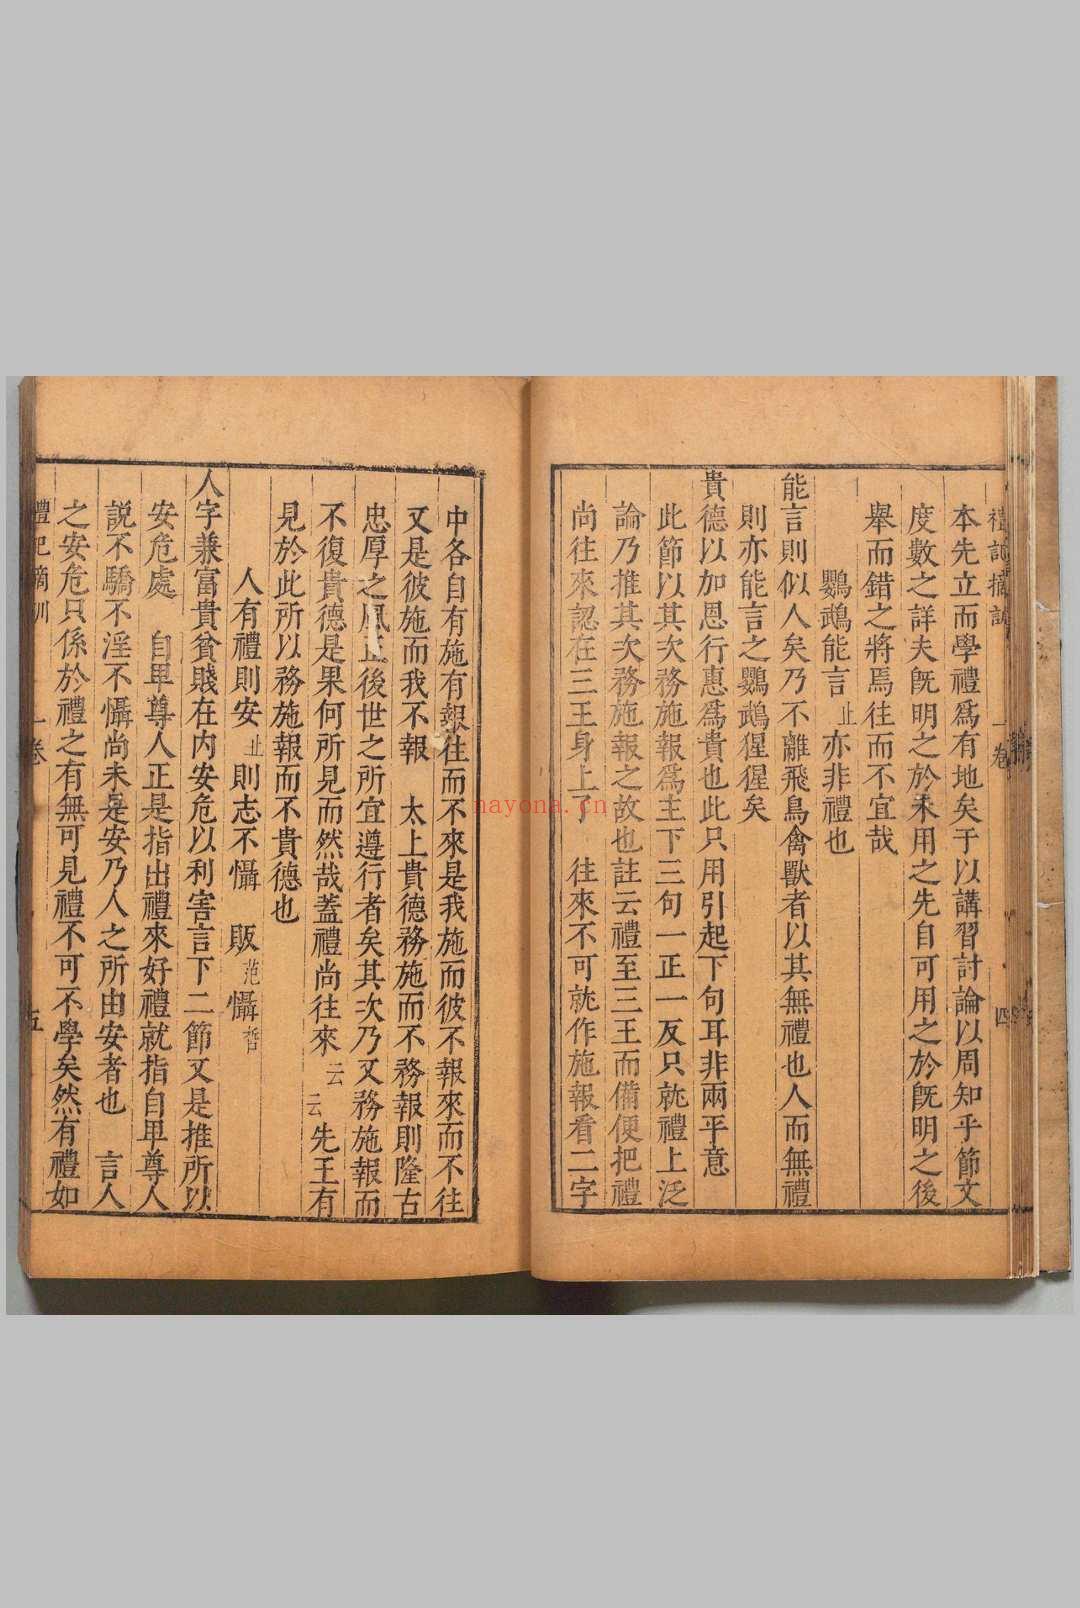 禮記摘訓 一卷 四
本先立而學禮爲有地矣于以講習討論以周知乎節文
度數之詳夫旣明之於未用之先自可用之於旣明之後
舉而錯之將焉往而不宜哉
鸚鵡能言止亦非禮也
能言則似人矣乃不離飛鳥禽獸者以其無禮也人而無禮
則亦能言之鸚鵡猩猩矣
貴德以加恩行惠爲貴也此只用引起下句耳非兩平意
此節以其次務施報爲主下三句一正一反只就禮上泛
論乃推其次務施報之故也註云禮至三王而備便把禮
尚往來認在三王身上了 往來不可就作施報看二字
中各自有施有報往而不來是我施而彼不報來而不往
又是彼施而我不報 太上貴德務施而不務報則隆古
忠厚之風 後世之所宜遵行者矣其次乃又務施報而
不復貴德是果何所見而然哉蓋禮尚往來云云先王有
見於此所以務施報而不貴德也
人有禮則安止則志不懾 販范懾哲
人字兼富貴貧賤在內安危以利害言下二節又是推所以
安危處 自卑尊人正是指出禮來好禮就指自卑尊人
說不驕不淫不懾尚未是安乃人之所由安者也 言人
之安危只係於禮之有無可見禮不可不學矣然有禮如
禮記摘訓 一卷 五
nayona.cn